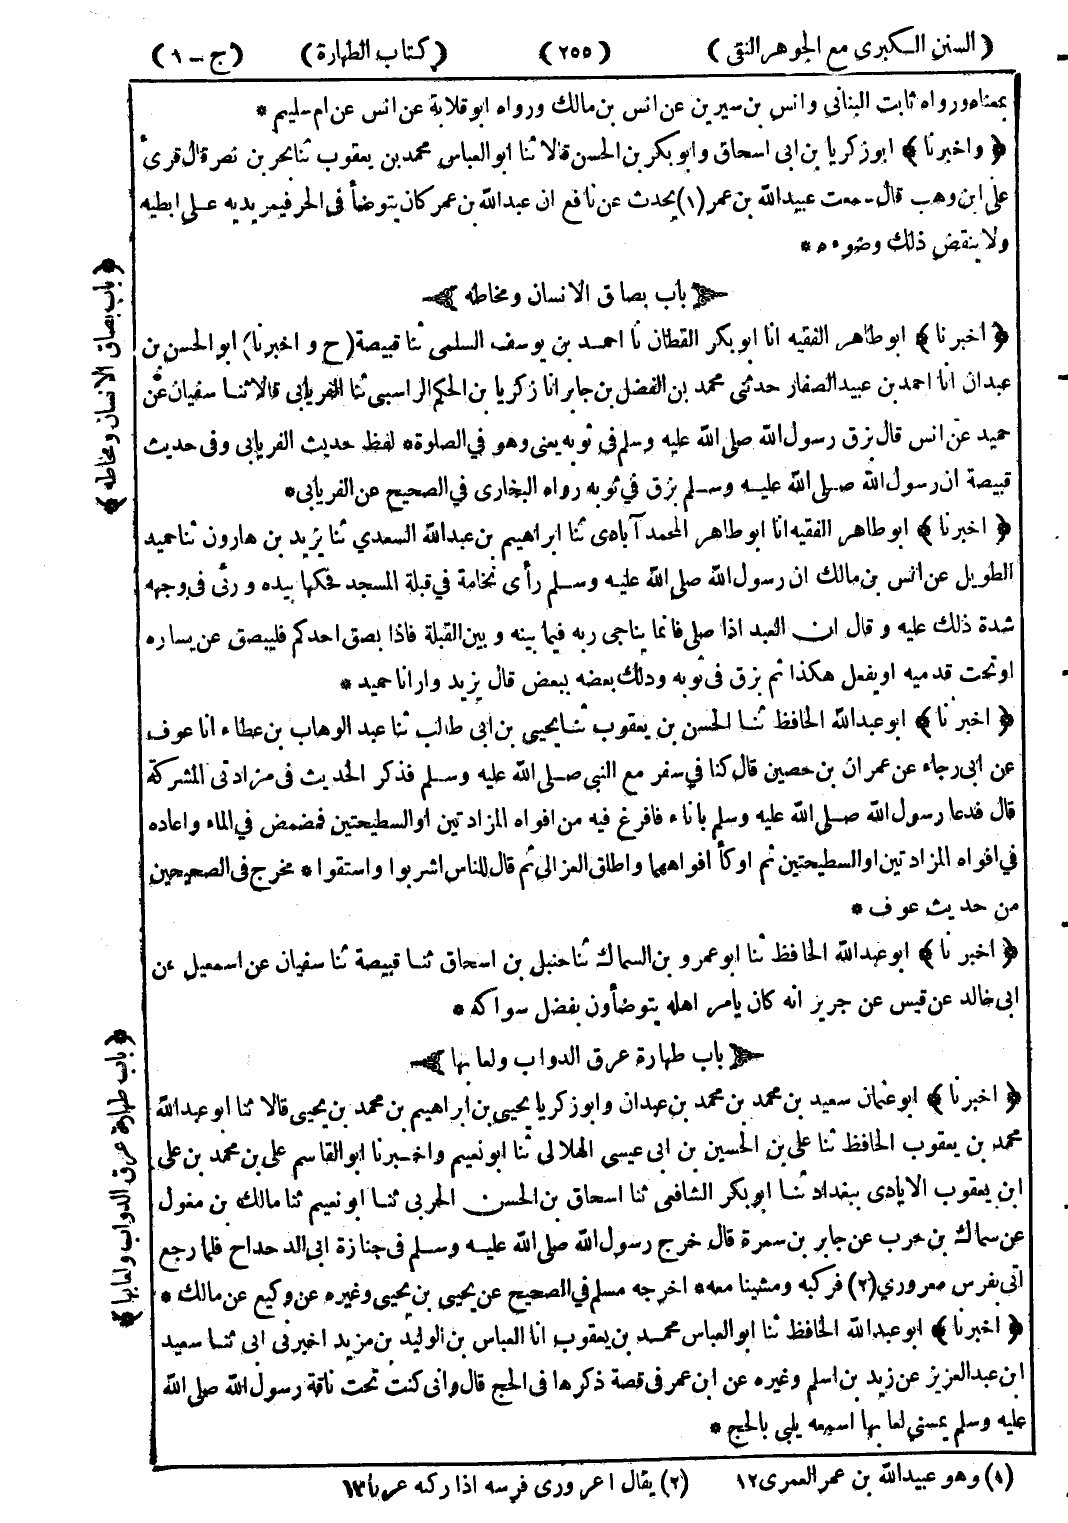 (السنن الكبرى مع الجوهر النقى) (٢٥٥) (كتاب الطهارة) (ج - ١)
بمعناه ورواه ثابت البنانى وانس بن سيرين عن انس بن مالك ورواه ابو قلابة عن انس عن ام سليم *
﴿ واخبرنا ﴾ ابو زكريا بن ابى اسحاق وابو بكر بن الحسن قالا ثنا ابو العباس محمد بن يعقوب ثنا بحر بن نصر قال قرئ
على ابن وهب قال سمعت عبيدالله بن عمر (١) يحدث عن نافع ان عبدالله بن عمر كان يتوضأ فى الحر فيمر يديه على ابطيه
ولا ينقض ذلك وضوءه *
باب بصاق الانسان ومخاطه
﴿ اخبرنا ﴾ ابو طاهر الفقيه انا ابو بكر القطان نا احمد بن يوسف السلمى ثنا قبيصة (ح و اخبرنا) ابو الحسن بن
عبدان انا احمد بن عبيد الصفار حدثنى محمد بن الفضل بن جابر انا زكريا بن الحكم الراسبى ثنا الفريابى قالا ثنا سفيان عن
حميد عن انس قال بزق رسول الله صلى الله عليه وسلم فى ثوبه يعنى وهو فى الصلوة * لفظ حديث الفريابى وفى حديث
قبيصة ان رسول الله صلى الله عليه وسلم بزق فى ثوبه رواه البخارى فى الصحيح عن الفريابى *
﴿ اخبرنا ﴾ ابو طاهر الفقيه انا ابو طاهر المحمد آبادى ثنا ابراهيم بن عبدالله السعدي ثنا يزيد بن هارون ثنا حميد
الطويل عن انس بن مالك ان رسول الله صلى الله عليه وسلم رأى نخامة فى قبلة المسجد فحكها بيده و رئى فى وجهه
شدة ذلك عليه و قال ان العبد اذا صلى فانما يناجى ربه فيما بينه و بين القبلة فاذا بصق احدكم فليبصق عن يساره
او تحت قدميه او يفعل هكذا ثم بزق فى ثوبه ودلك بعضه ببعض قال يزيد وارانا حميد *
﴿ اخبرنا ﴾ ابو عبدالله الحافظ ثنا الحسن بن يعقوب ثنا يحيى بن ابى طالب ثنا عبد الوهاب بن عطاء انا عوف
عن ابى رجاء عن عمران بن حصين قال كنا في سفر مع النبى صلى الله عليه وسلم فذكر الحديث فى مزادتى المشركة
قال فدعا رسول الله صلى الله عليه وسلم باناء فافرغ فيه من افواه المزادتين او السطيحتين فمضمض فى الماء واعاده
فى افواه المزادتين او السطيحتين ثم اوكأ افواههما واطلق العزالى ثم قال للناس اشربوا واستقوا * مخرج فى الصحيحين
من حديث عوف *
﴿ اخبرنا ﴾ ابو عبدالله الحافظ ثنا ابو عمرو بن السماك ثنا حنبل بن اسحاق ثنا قبيصة ثنا سفيان عن اسمعيل بن
ابى خالد عن قيس عن جرير انه كان يامر اهله يتوضأون بفضل سواكه *
باب طهارة عرق الدواب ولعابها
﴿ اخبرنا ﴾ ابو عثمان سعيد بن محمد بن محمد بن عبدان وابو زكريا يحيى بن ابراهيم بن محمد بن يحيى قالا ثنا ابو عبدالله
محمد بن يعقوب الحافظ ثنا على بن الحسين بن ابى عيسى الهلالى ثنا ابو نعيم واخبرنا ابو القاسم على بن محمد بن على
ابن يعقوب الايادى ببغداد ثنا ابو بكر الشافعى ثنا اسحاق بن الحسن الحربى ثنا ابو نعيم ثنا مالك بن مغول
عن سماك بن حرب عن جابر بن سمرة قال خرج رسول الله صلى الله عليه وسلم فى جنازة ابى الدحداح فلما رجع
اتى بفرس معرورى (٢) فركبه ومشينا معه * اخرجه مسلم فى الصحيح عن يحيى بن يحيى وغيره عن وكيع عن مالك *
﴿ اخبرنا ﴾ ابو عبدالله الحافظ ثنا ابو العباس محمد بن يعقوب انا العباس بن الوليد بن مزيد اخبرنى ابى ثنا سعيد
ابن عبد العزيز عن زيد بن اسلم وغيره عن ابن عمر فى قصة ذكرها فى الحج قال وانى كنت تحت ناقة رسول الله صلى الله
عليه وسلم يمسنى لعابها اسمعه يلبى بالحج *
(١) وهو عبيدالله بن عمر العمرى ١٢ (٢) يقال اعرورى فرسه اذا ركبه عريا ١٣
﴿ باب بصاق الانسان ومخاطه ﴾
﴿ باب طهارة عرق الدواب ولعابها ﴾